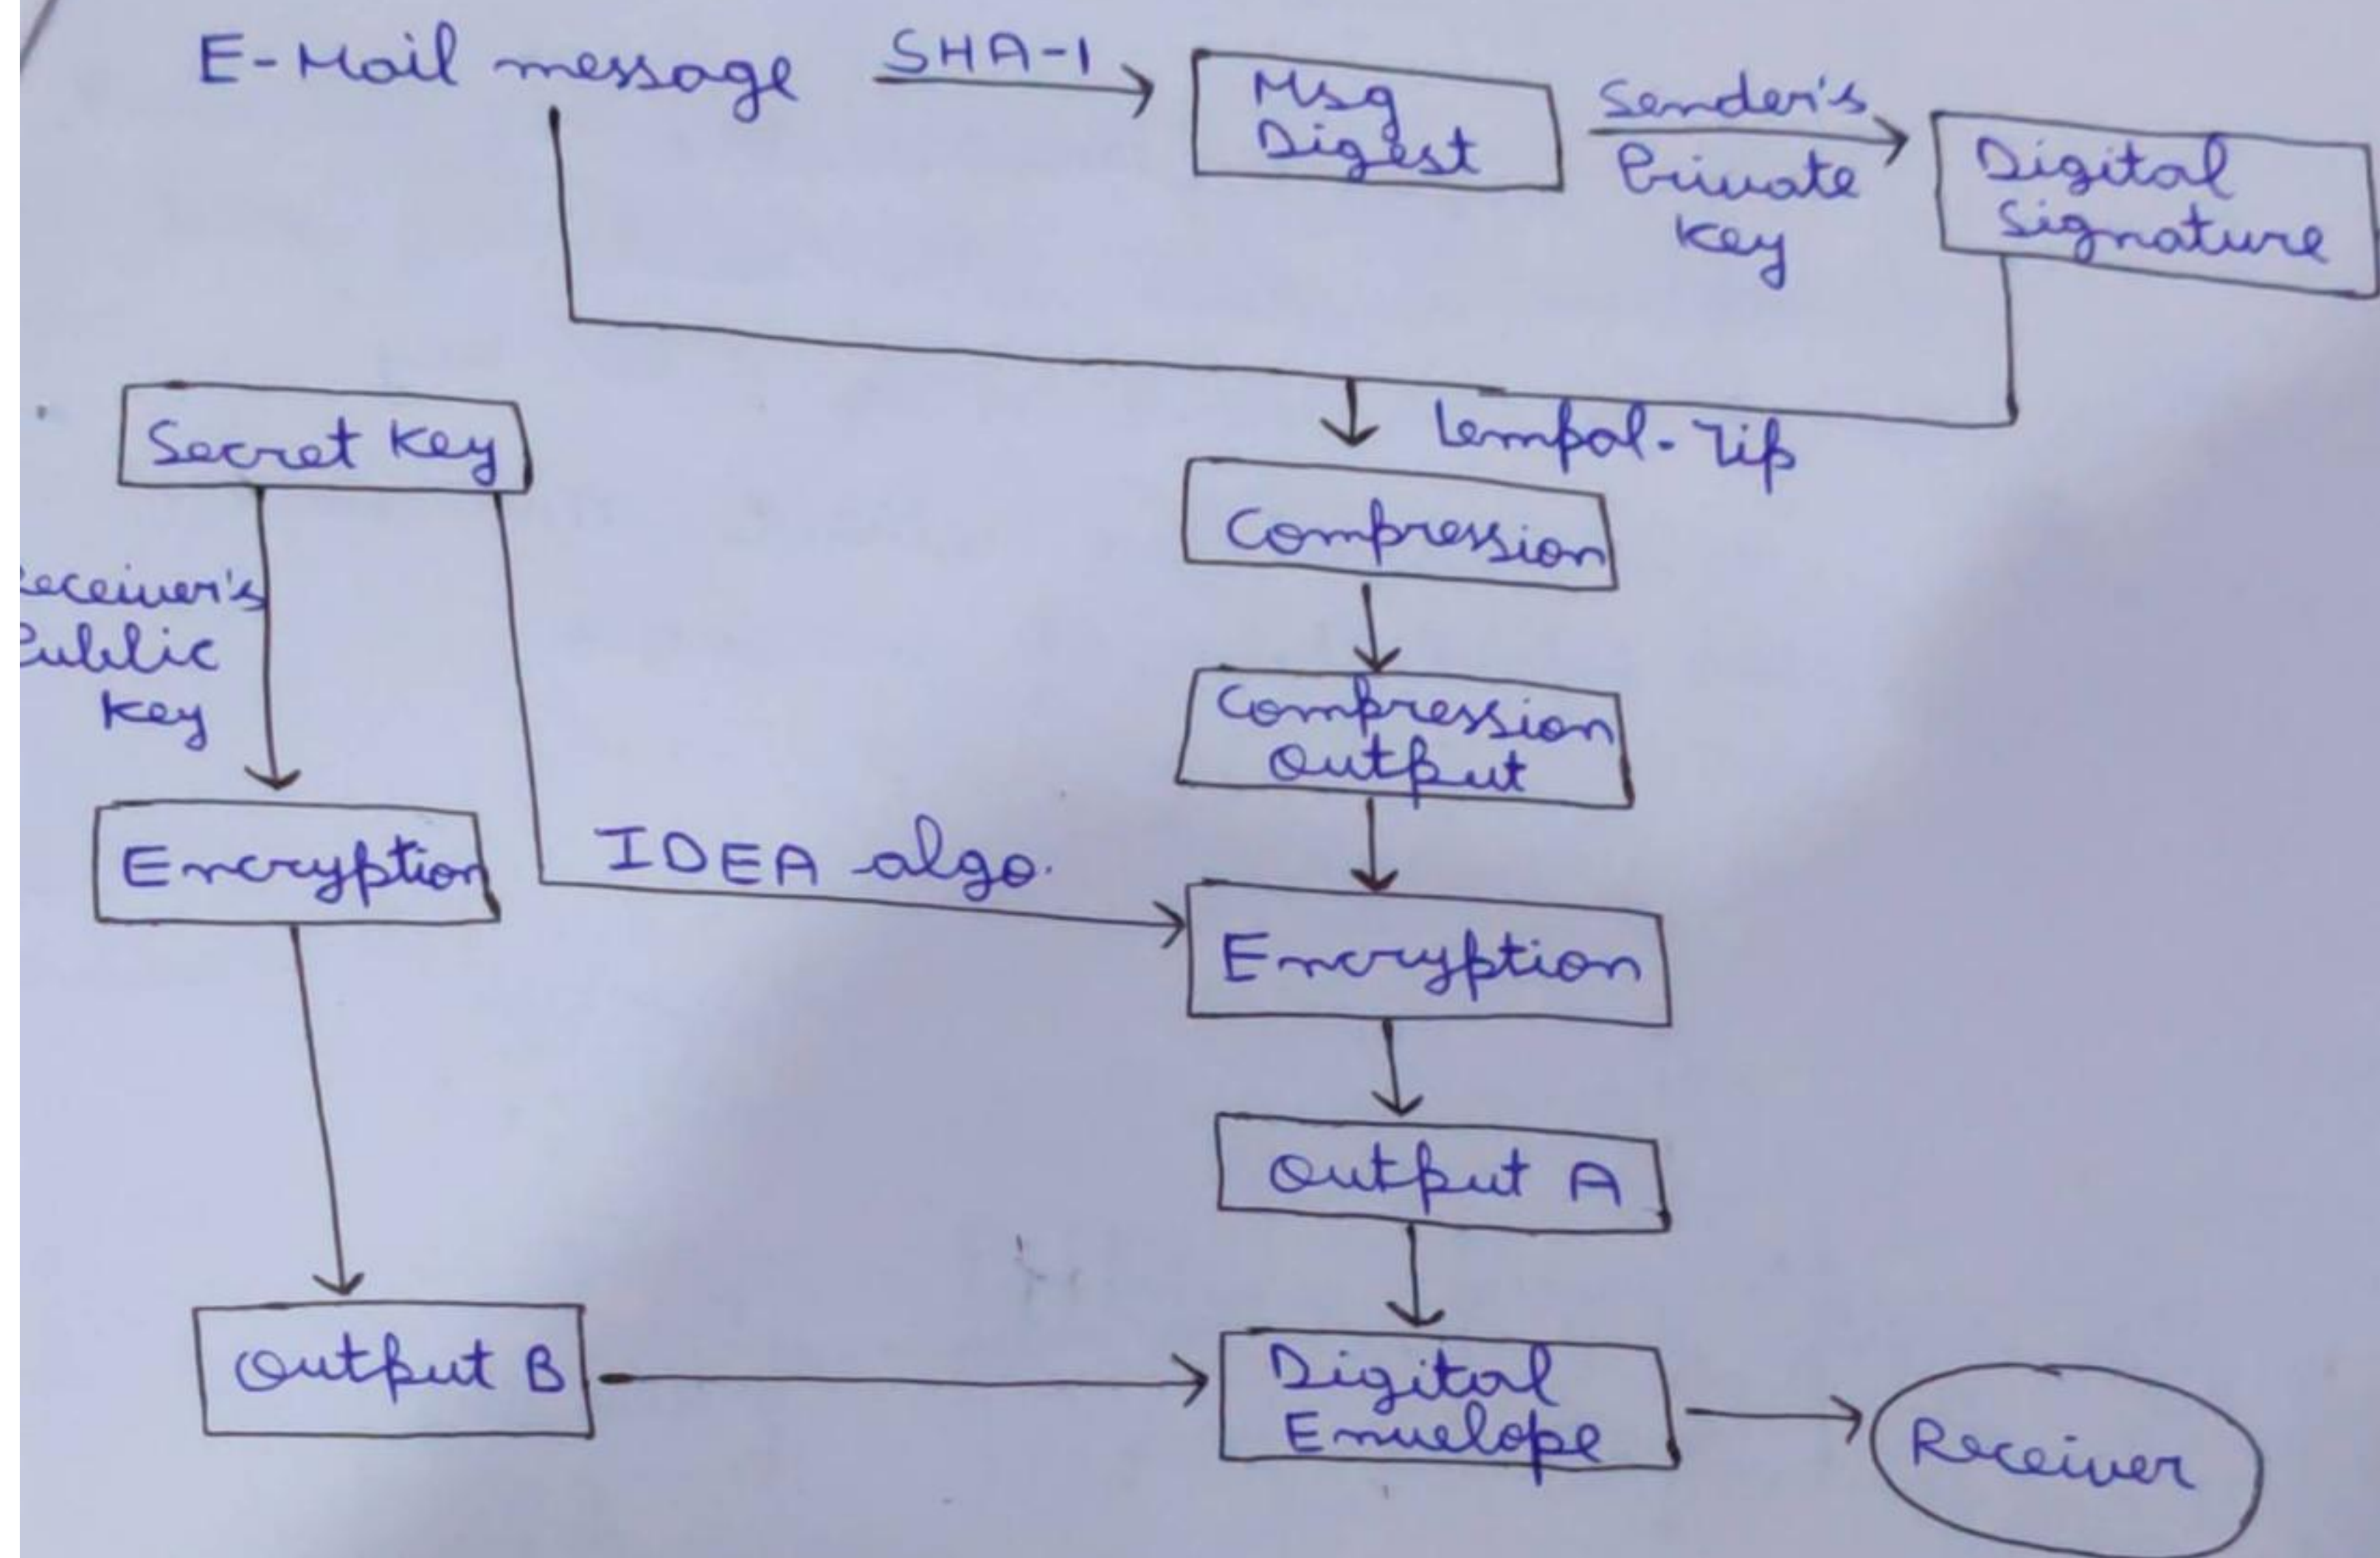 E-Mail message
SHA-1
Msg
Digest
Sender's
Private
key
Digital
Signature
Lempal-Zip
Secret key
Compression
Receiver's
Public
key
Compression
Output
Encryption
IDEA algo.
Encryption
Output A
Output B
Digital
Envelope
Receiver